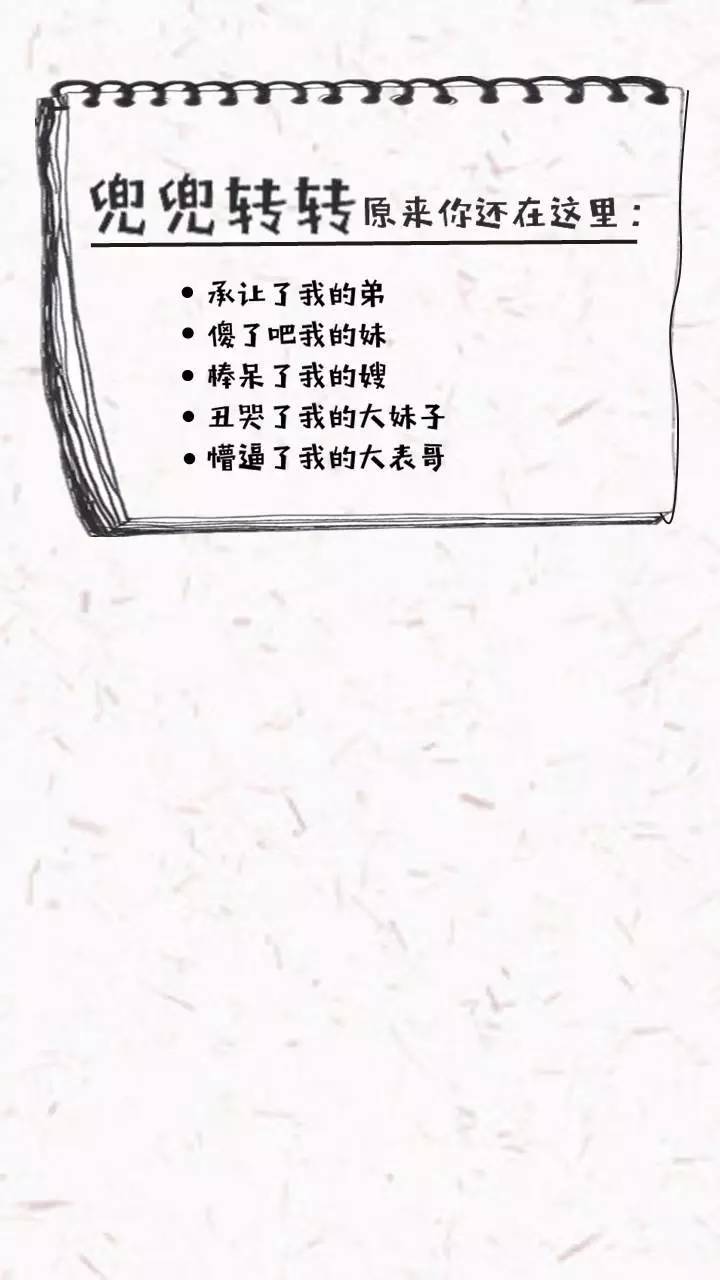 兜兜转转原来你还在这里：
• 承让了我的弟
• 傻了吧我的妹
• 棒呆了我的嫂
• 丑哭了我的大妹子
• 懵逼了我的大表哥